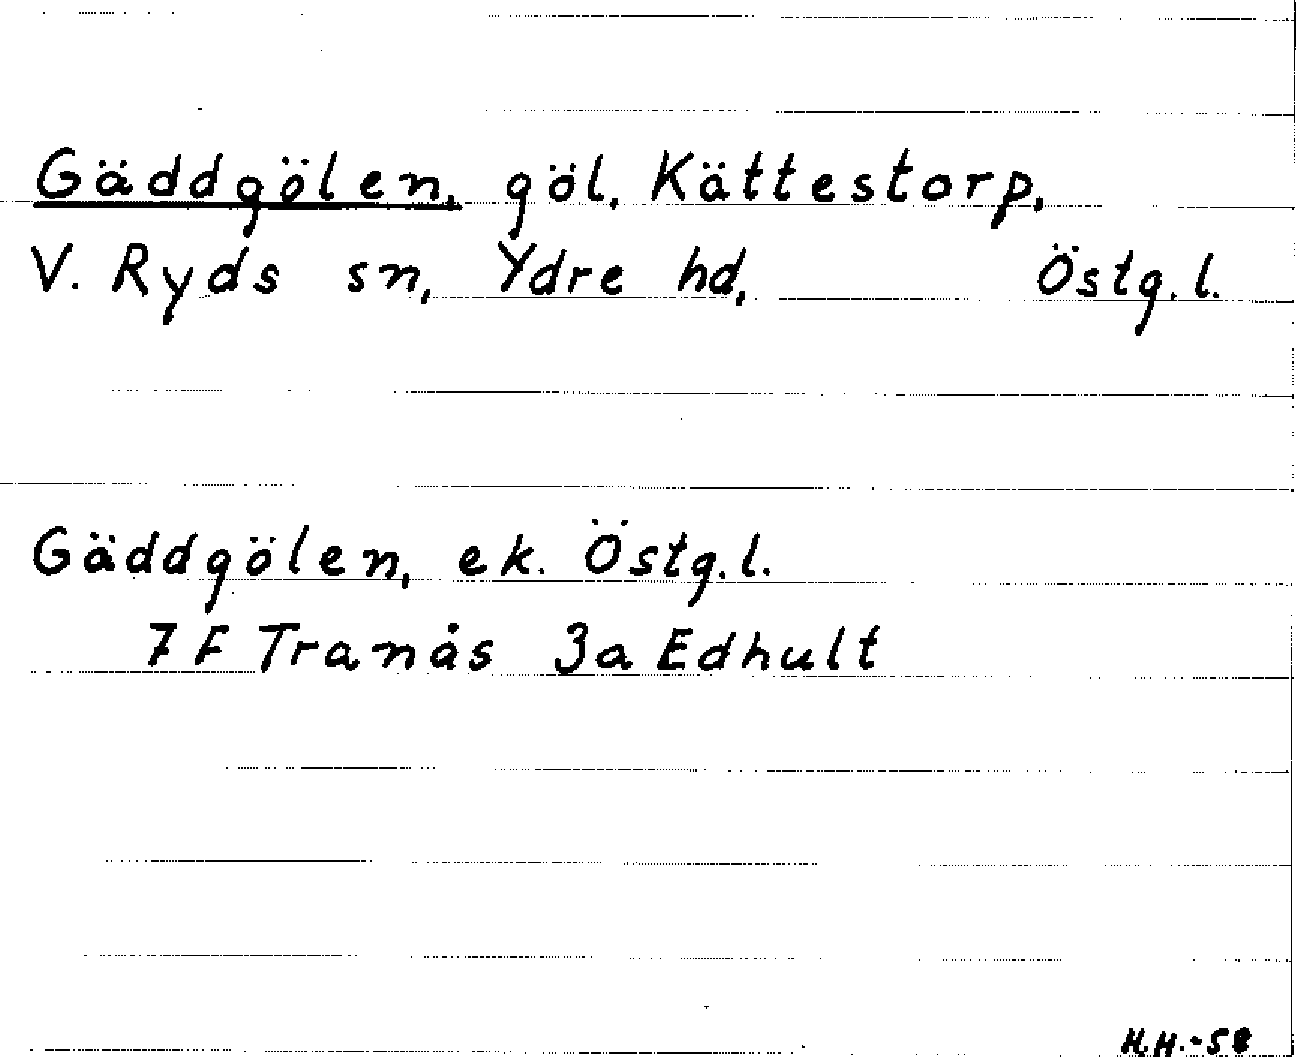 Gäddgölen, göl, Kättestorp,
V. Ryds sn, Ydre hd, Östg. l.
Gäddgölen, ek. Östg. l.
7 F Tranås 3a Edhult
H.H.-58